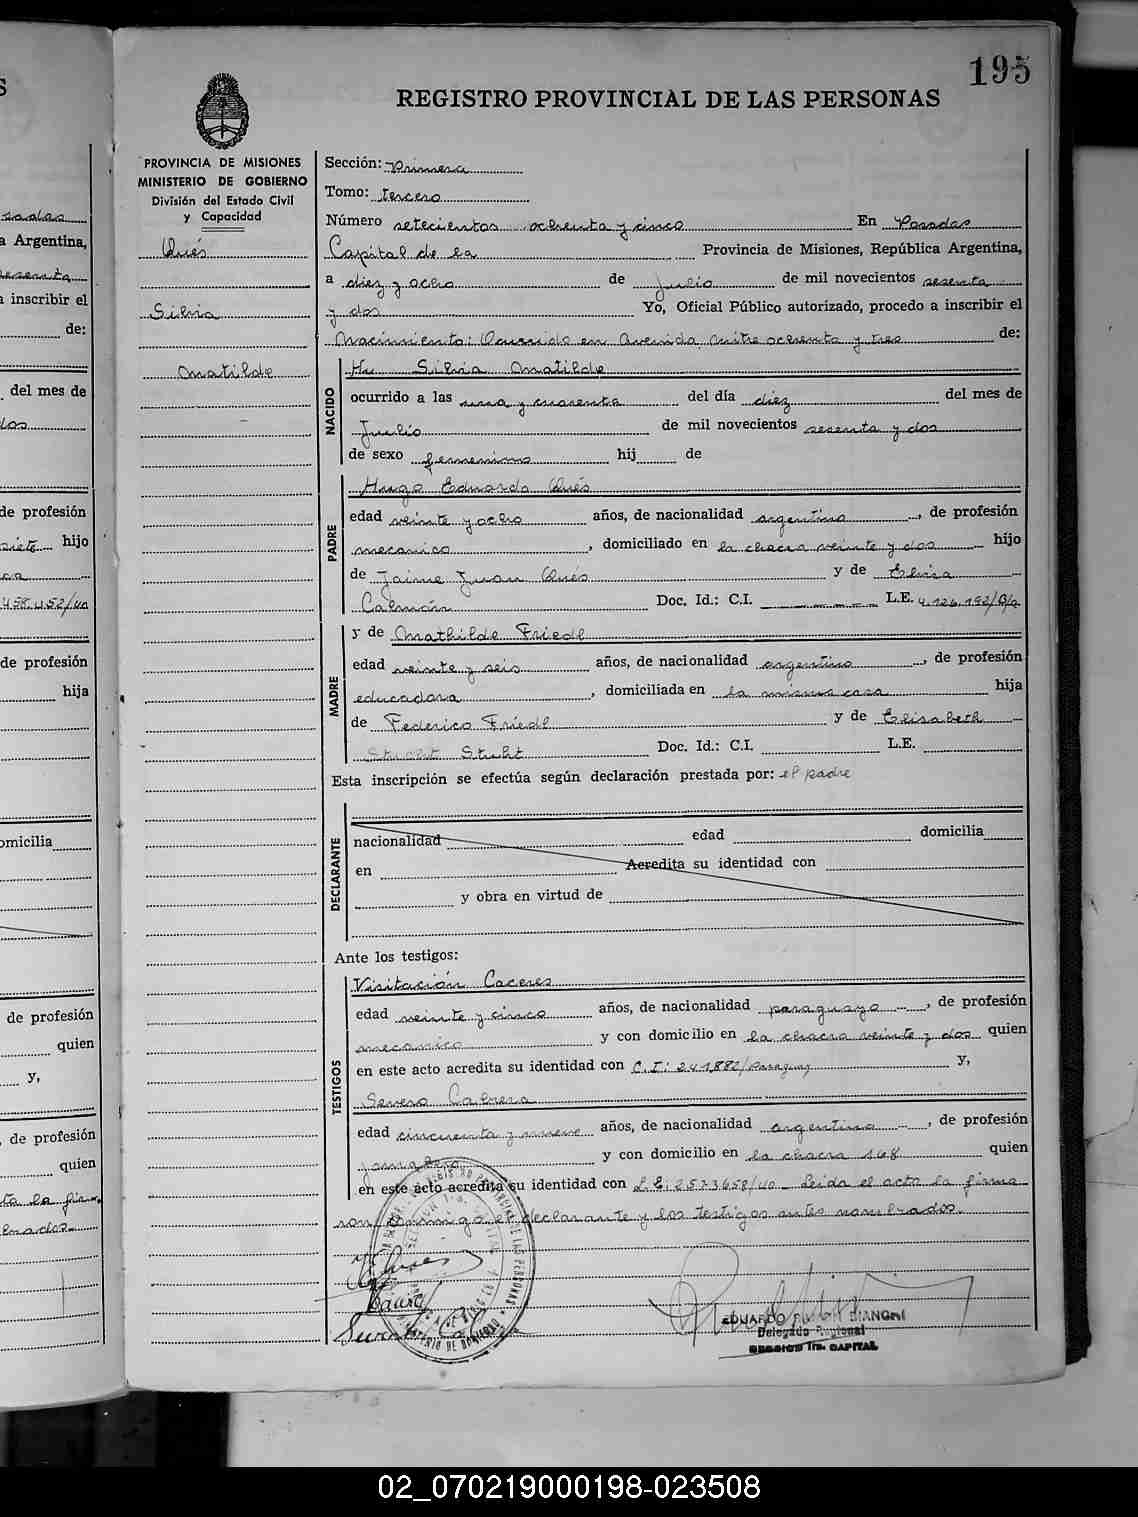 195
REGISTRO PROVINCIAL DE LAS PERSONAS
PROVINCIA DE MISIONES
MINISTERIO DE GOBIERNO
División del Estado Civil
y Capacidad
Qués
Silvia
Matilde
Sección: Primera
Tomo: tercero
Número setecientos ochenta y cinco En Posadas
Capital de la Provincia de Misiones, República Argentina,
a diez y ocho de Julio de mil novecientos sesenta
y dos Yo, Oficial Público autorizado, procedo a inscribir el
Nacimiento: Ocurrido en Avenida Mitre ochenta y tres de:
NACIDO
Silvia Matilde
ocurrido a las una y cuarenta del día diez del mes de
Julio de mil novecientos sesenta y dos
de sexo femenino hij de
PADRE
Hugo Eduardo Qués
edad veinte y ocho años, de nacionalidad argentina, de profesión
mecanico, domiciliado en la chacra veinte y dos hijo
de Jaime Juan Qués y de Elvia
Doc. Id.: C.I. L.E. 4.126.192/
MADRE
y de Mathilde Friedl
edad veinte y seis años, de nacionalidad argentina, de profesión
educadora, domiciliada en la misma casa hija
de Federico Friedl y de Elisabeth
Stuht Doc. Id.: C.I. L.E.
Esta inscripción se efectúa según declaración prestada por: el padre
DECLARANTE
nacionalidad edad domicilia
en Acredita su identidad con
y obra en virtud de
Ante los testigos:
TESTIGOS
Visitación Caceres
edad veinte y cinco años, de nacionalidad paraguaya, de profesión
mecanico y con domicilio en la chacra veinte y dos quien
en este acto acredita su identidad con C.I: 241.882/Paraguay y,
Severo Cabrera
edad cincuenta y nueve años, de nacionalidad argentina, de profesión
jornalero y con domicilio en la chacra 168 quien
en este acto acredita su identidad con L.E: 2.573.658/40 Leida el acta la firma
ron conmigo el declarante y los testigos antes nombrados.
EDUARDO BIANCHI
Delegado Regional
CAPITAL
a Argentina,
inscribir el
de:
del mes de
de profesión
hijo
de profesión
hija
omicilia
de profesión
quien
y,
de profesión
quien
02_070219000198-023508